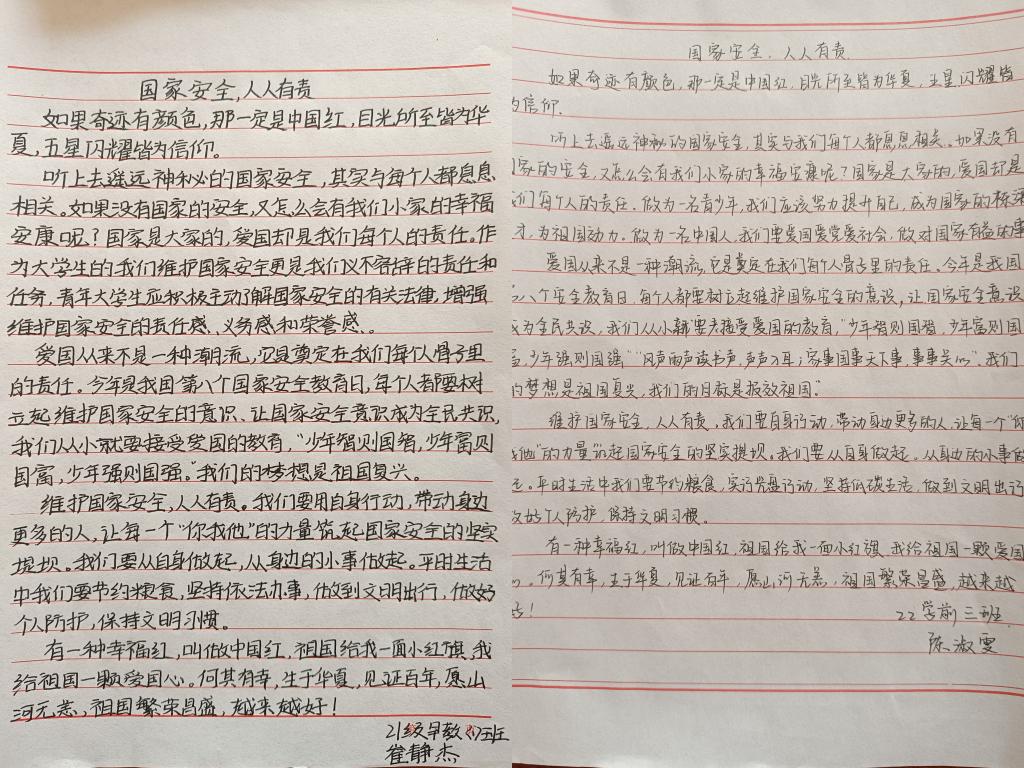 国家安全,人人有责
如果奇迹有颜色,那一定是中国红,目光所至皆为华
夏,五星闪耀皆为信仰。
听上去遥远神秘的国家安全,其实与每个人都息息
相关。如果没有国家的安全,又怎么会有我们小家的幸福
安康呢?国家是大家的,爱国却是我们每个人的责任。作
为大学生的我们维护国家安全更是我们义不容辞的责任和
任务,青年大学生应积极主动了解国家安全的有关法律,增强
维护国家安全的责任感、义务感和荣誉感。
爱国从来不是一种潮流,它是奠定在我们每个人骨子里
的责任。今年是我国第八个国家安全教育日,每个人都要树
立起维护国家安全的意识、让国家安全意识成为全民共识,
我们从小就要接受爱国的教育,“少年智则国智,少年富则
国富,少年强则国强。”我们的梦想是祖国复兴。
维护国家安全,人人有责。我们要用自身行动,带动身边
更多的人,让每一个“你我他”的力量筑起国家安全的坚实
堤坝。我们要从自身做起,从身边的小事做起。平时生活
中我们要节约粮食,坚持依法办事,做到文明出行,做好
个人防护,保持文明习惯。
有一种幸福红,叫做中国红,祖国给我一面小红旗,我
给祖国一颗爱国心。何其有幸,生于华夏,见证百年,愿山
河无恙,祖国繁荣昌盛,越来越好!
21级早教(3)班
崔静杰
国家安全,人人有责
如果奇迹有颜色,那一定是中国红,目光所至皆为华夏,五星闪耀皆
为信仰.
听上去遥远神秘的国家安全,其实与我们每个人都息息相关。如果没有
家的安全,又怎么会有我们小家的幸福安康呢?国家是大家的,爱国却是
们每个人的责任.做为一名青少年,我们应该努力提升自己,成为国家的栋梁
才,为祖国助力.做为一名中国人,我们要爱国爱党爱社会,做对国家有益的事
爱国从来不是一种潮流,它是奠定在我们每个人骨子里的责任.今年是我国
八个安全教育日,每个人都要树立起维护国家安全的意识,让国家安全意识
成为全民共识,我们从小就要接受爱国的教育,“少年智则国智,少年富则国
富,少年强则国强”“风声雨声读书声,声声入耳;家事国事天下事,事事关心”.我们
的梦想是祖国复兴,我们的目标是报效祖国”
维护国家安全,人人有责.我们要自身行动,带动身边更多的人,让每一个“你
我他”的力量筑起国家安全的坚实堤坝.我们要从自身做起.从身边的小事做
起.平时生活中我们要节约粮食,实行光盘行动,坚持低碳生活,做到文明出行
做好个人防护,保持文明习惯。
有一种幸福红,叫做中国红,祖国给我一面小红旗,我给祖国一颗爱国
心.何其有幸,生于华夏,见证百年,愿山河无恙,祖国繁荣昌盛,越来越
好!
22学前三班
陈淑雯